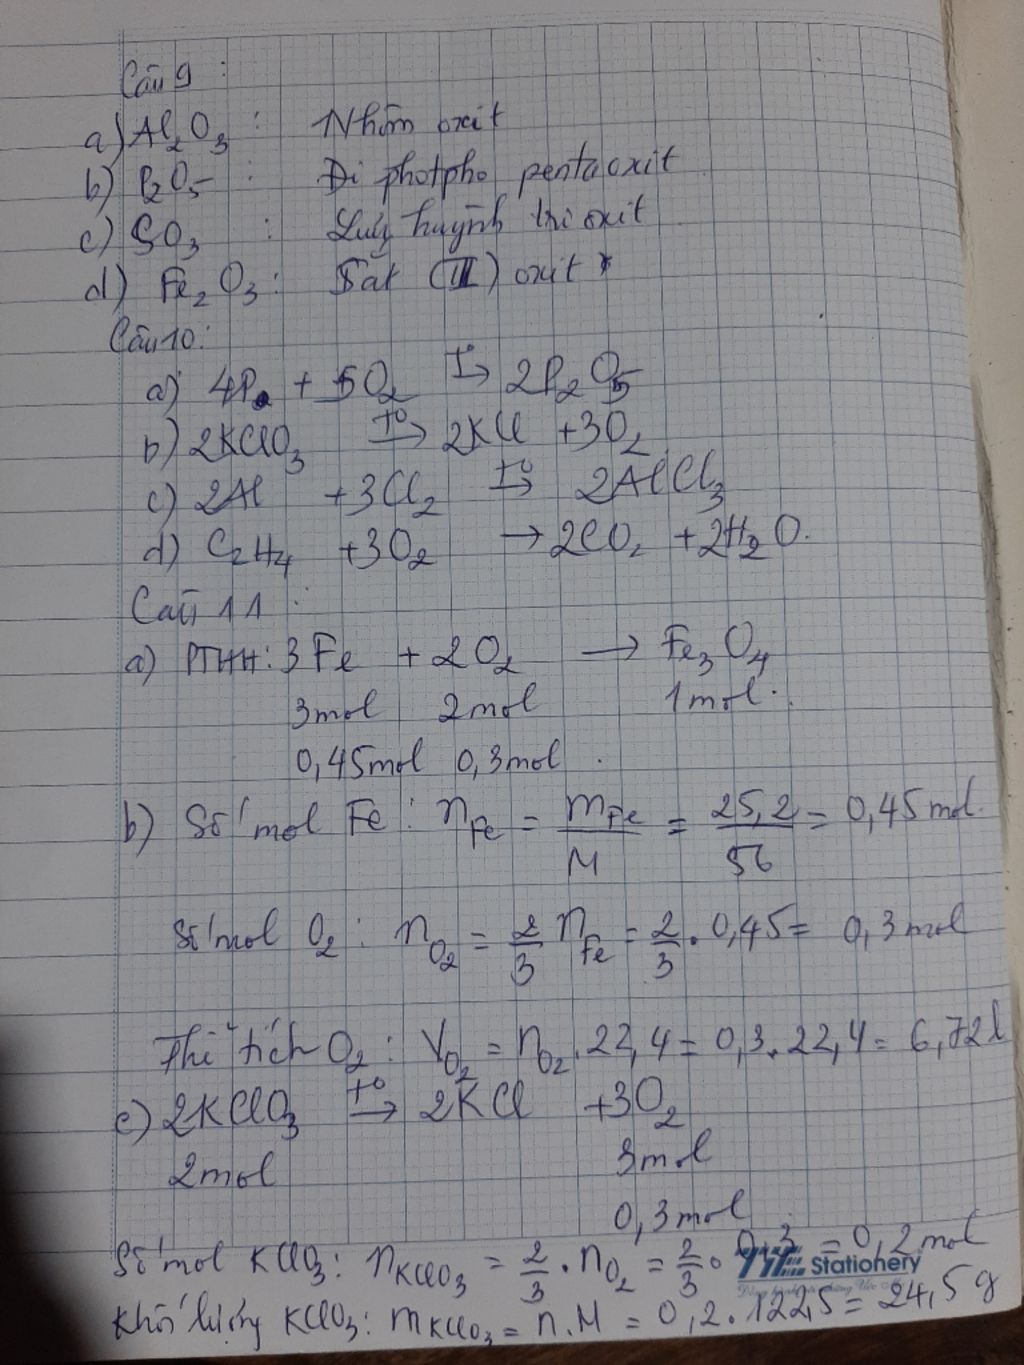 Câu 9 :
a) Al₂O₃ : Nhôm oxit
b) P₂O₅ : Đi photpho pentaoxit
c) SO₃ : Lưu huỳnh tri oxit
d) Fe₂O₃ : Sắt (III) oxit
Câu 10:
a) 4P + 5O₂ t°→ 2P₂O₅
b) 2KClO₃ t°→ 2KCl +3O₂
c) 2Al +3Cl₂ t°→ 2AlCl₃
d) C₂H₄ +3O₂ → 2CO₂ +2H₂O.
Câu 11 :
a) PTHH: 3Fe + 2O₂ → Fe₃O₄
3mol 2mol 1mol.
0,45mol 0,3mol .
b) Số mol Fe : n_Fe = m_Fe/M = 25,2/56 = 0,45 mol.
Số mol O₂ : n_O₂ = 2/3 n_Fe = 2/3 . 0,45 = 0,3 mol
Thể tích O₂ : V_O₂ = n_O₂ . 22,4 = 0,3 . 22,4 = 6,72 l
c) 2KClO₃ t°→ 2KCl +3O₂
2mol 3mol
0,3mol
Số mol KClO₃ : n_KClO₃ = 2/3 . n_O₂ = 2/3 . 0,3 = 0,2 mol
Stationery
Khối lượng KClO₃ : m_KClO₃ = n.M = 0,2 . 122,5 = 24,5 g